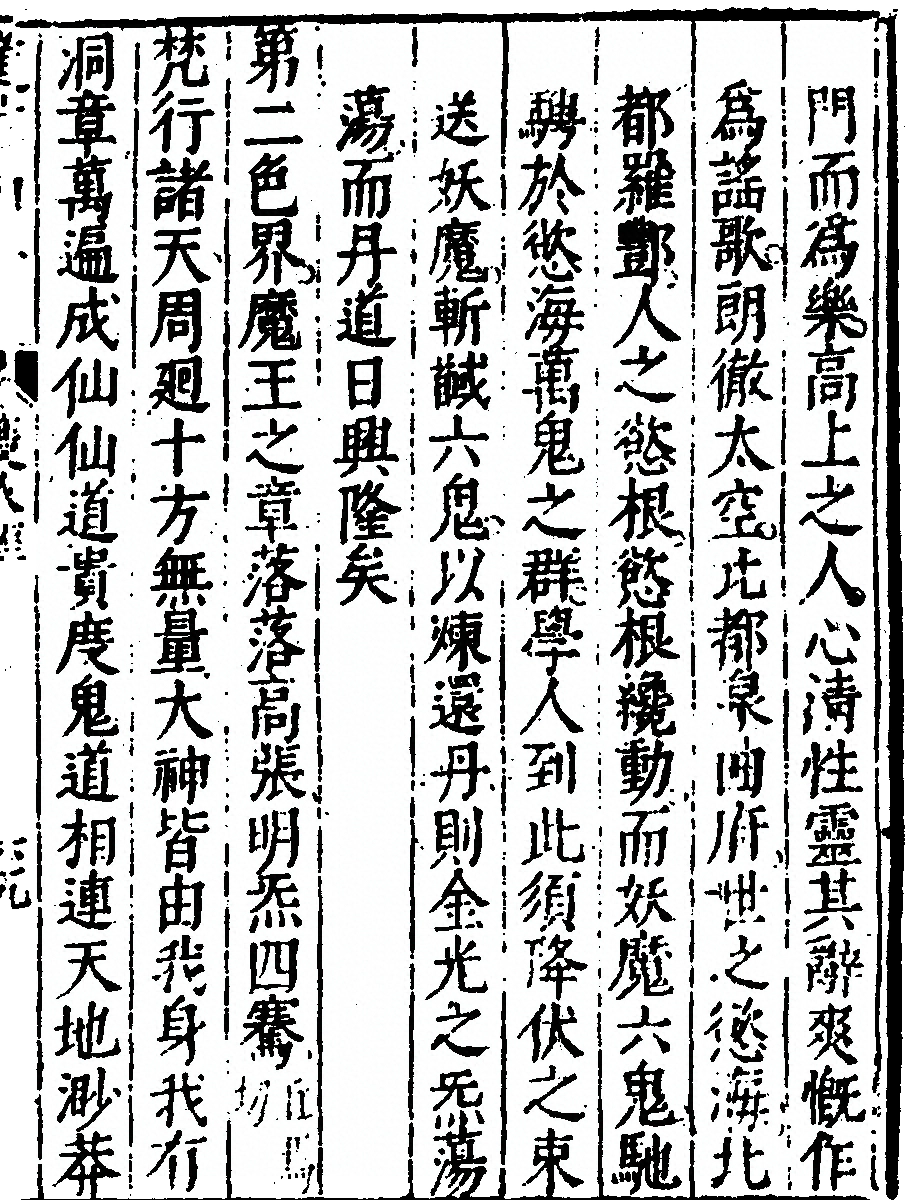 門而為樂高上之人心清性靈其辭爽慨作
為謡歌朗徹太空北都泉曲府世之慾海北
都羅酆人之慾根慾根纔動而妖魔六鬼馳
騁於慾海萬鬼之群學人到此須降伏之束
送妖魔斬馘六鬼以煉還丹則金光之炁蕩
蕩而丹道日興隆矣
第二色界魔王之章落落高張明炁四騫丘馬切
梵行諸天周廻十方無量大神皆由我身我有
洞章萬遍成仙仙道貴度鬼道相連天地渺莽